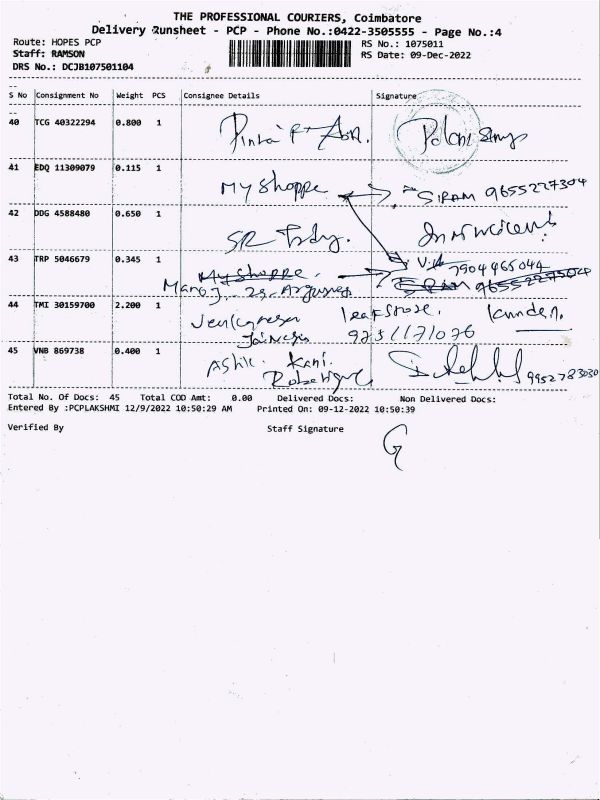 THE PROFESSIONAL COURIERS, Coimbatore
Delivery Runsheet - PCP - Phone No.:0422-3505555 - Page No.:4
Route: HOPES PCP
RS No.: 1075011
Staff: RAMSON
RS Date: 09-Dec-2022
DRS No.: DCJB107501104
S No Consignment No Weight PCS Consignee Details Signature
40 TCG 40322294 0.800 1
41 EDQ 11309079 0.115 1 My Shoppe SIRAM 9655227304
42 DDG 4588480 0.650 1 SR
43 TRP 5046679 0.345 1 My Shoppe 7904465044
Manoj
44 TMI 30159700 2.200 1
45 VNB 869738 0.400 1 Kani 9952783030
Total No. Of Docs: 45 Total COD Amt: 0.00 Delivered Docs: Non Delivered Docs:
Entered By :PCPLAKSHMI 12/9/2022 10:50:29 AM Printed On: 09-12-2022 10:50:39
Verified By Staff Signature